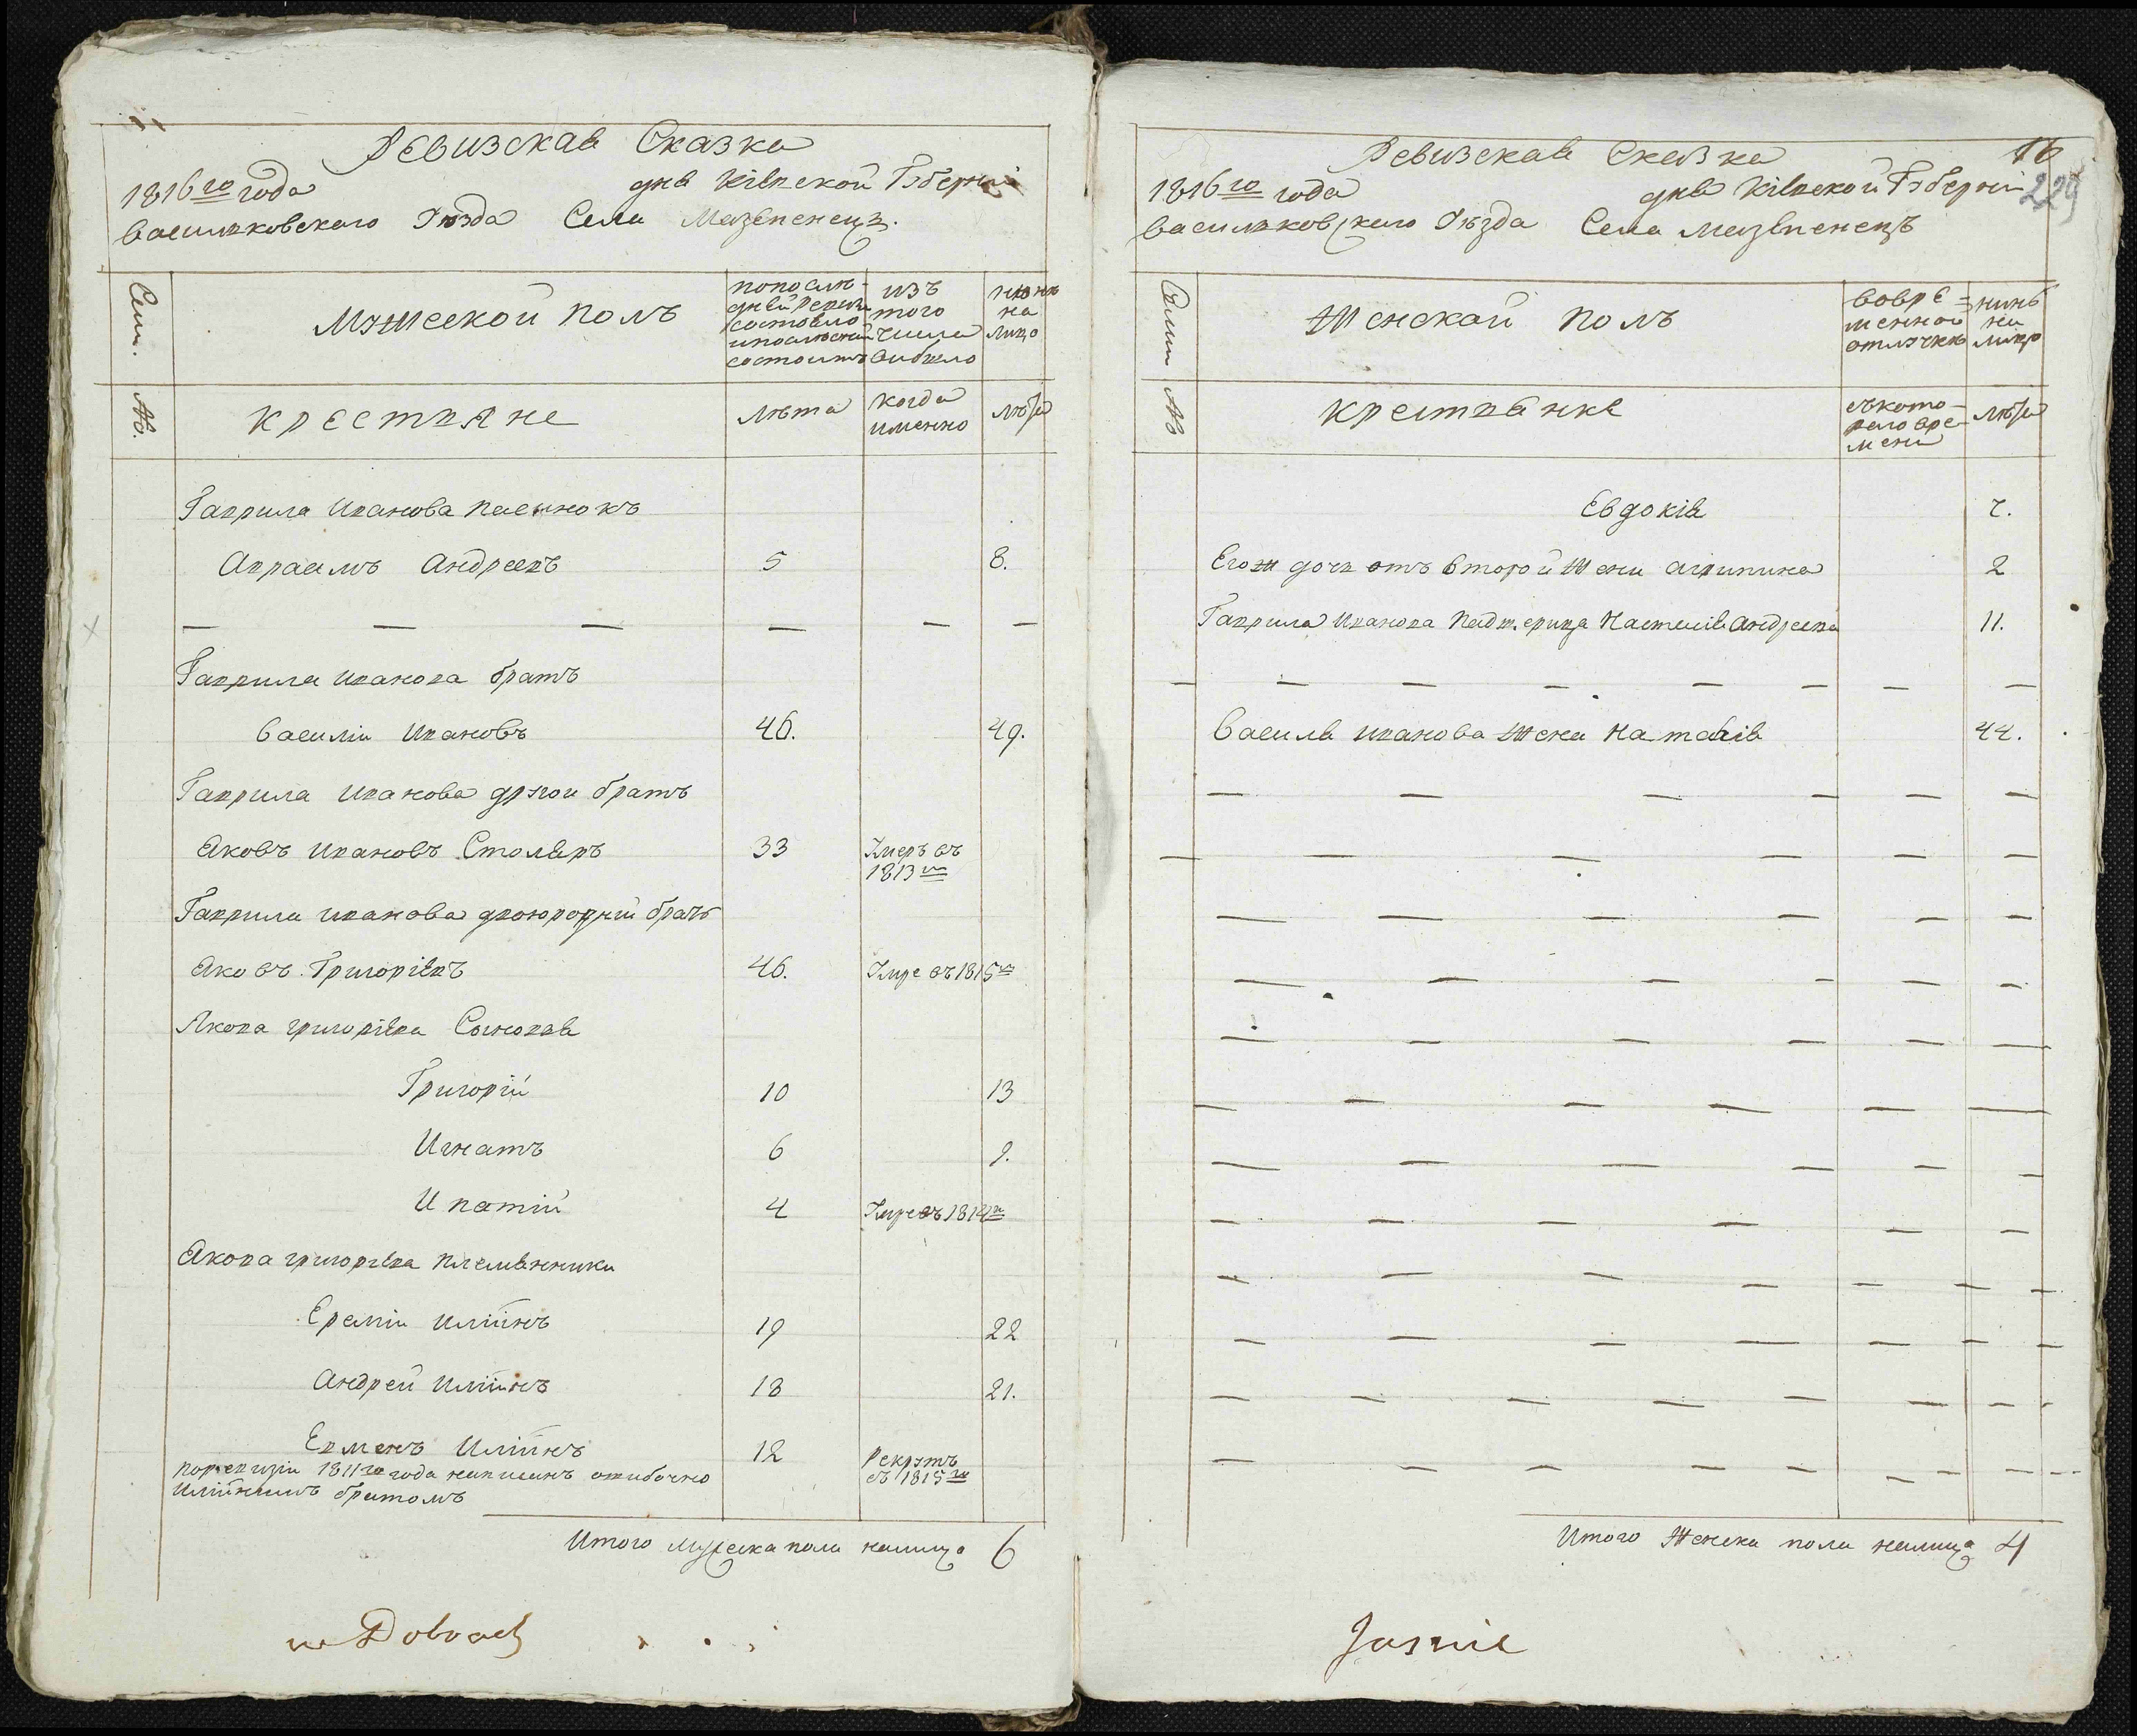 Ревизская Сказка
1816го года дня Кіевской Губерніи
Василковского Уѣзда Села Мазепенецъ.
Сем.
Мужеской полъ
по послѣ-
дней ревизи
состояло
и после оной
состоитъ
изъ
того
числа
выбыло
нынѣ
на
лицо
№.
крестьяне
лѣта
когда
именно
лѣта
Гаврила Иванова пасынокъ
Авраамъ Андреевъ 5 8.
— — — — — —
Гаврила Иванова братъ
Василіи Ивановъ 46. 49.
Гаврила Иванова другои братъ
Яковъ Ивановъ Столяръ 33 Умеръ въ
1813м
Гаврила Иванова двоюродній братъ
Яковъ Григоріевъ 46. Умре въ 1815м
Якова Григоріева Сыновья
Григорій 10 13
Игнатъ 6 9.
Ипатій 4 Умре въ 1814м
Якова Григоріева племянники
Еремiи Иліинъ 19 22
Андрей Иліинъ 18 21.
Евменъ Иліинъ 12 Рекрутъ
съ 1815го
по ревизіи 1811го года написанъ ошибочно
Иліинимъ братомъ
Итого мужеска пола налицо 6
w Dobrach
16
229
Ревизская Сказка
1816го года дня Кіевской Губерніи
Василковскаго Уѣзда Села Мазепенецъ
Семи
Женской полъ
во вре-
менной
отлучкѣ
нинѣ
на
лицо
№
крестьянке
съ кото-
раго вре-
мени
лѣта
Евдокія 7.
Егож дочь отъ второй жени Агрипина 2
Гаврила Иванова падчерица Настасія Андреева 11.
— — — — — — — —
Василя Иванова жена Наталія 44.
— — — — — —
— — — — — —
— — — — — —
— — — — — —
— — — — — —
— — — — — —
— — — — — —
— — — — — —
— — — — — — —
— — — — — — —
— — — — — — — —
— — — — — — — — —
Итого женска пола налицо 4
Jasnie